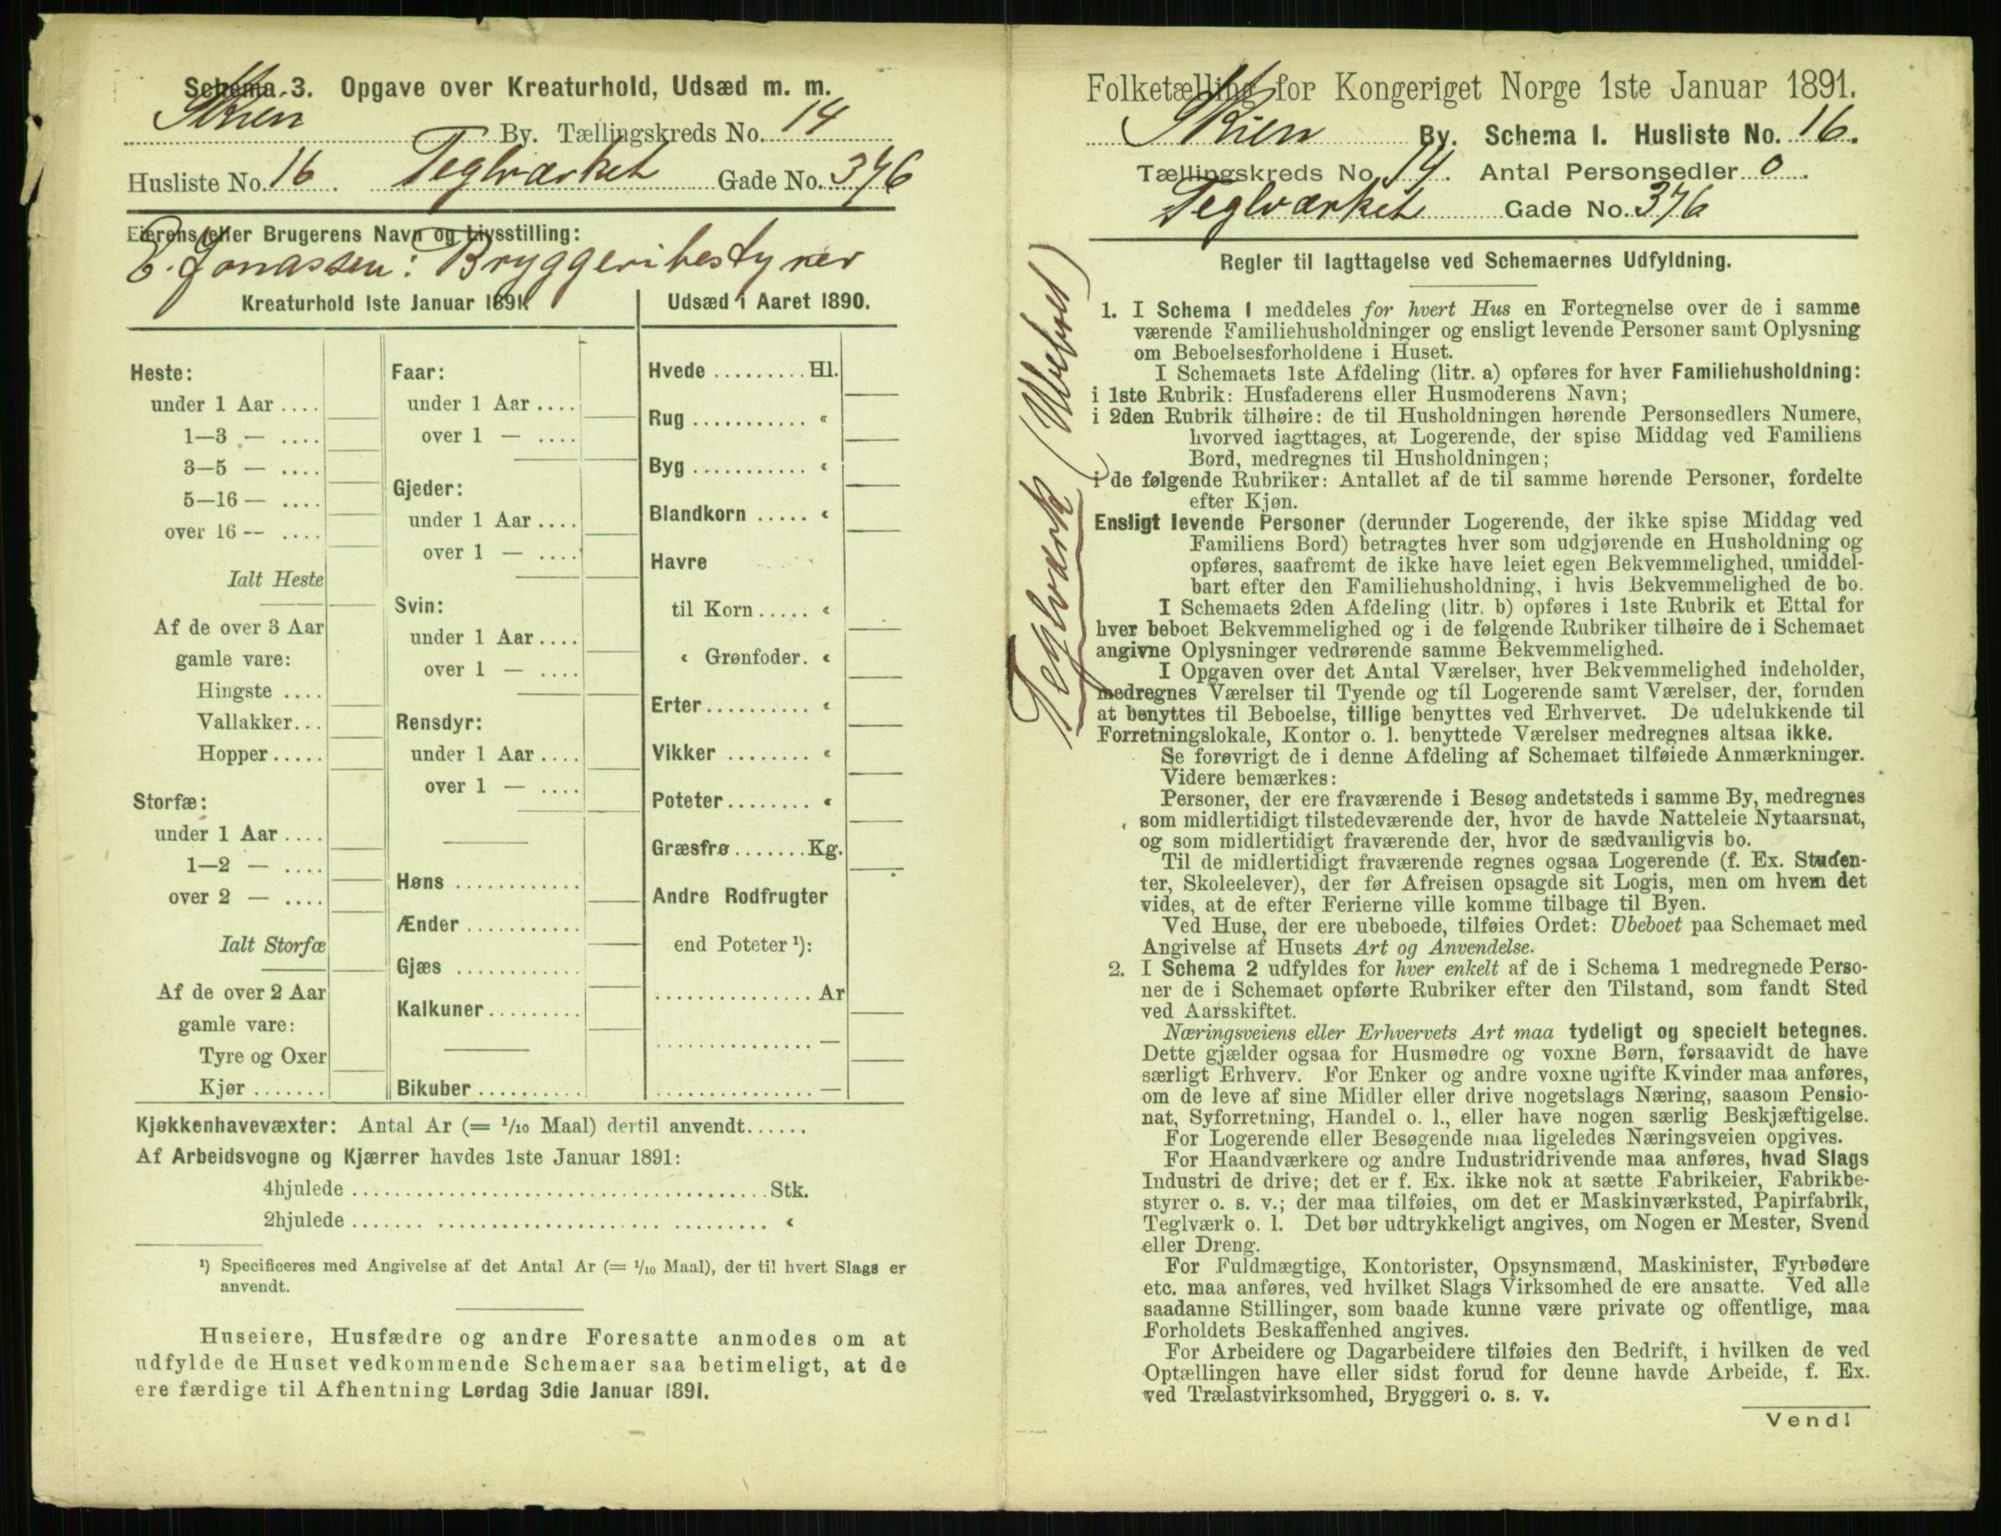 Schema 3. Opgave over Kreaturhold, Udsæd m. m.
Skien By. Tællingskreds No. 14
Husliste No. 16. Teglværket Gade No. 376
Eierens eller Brugerens Navn og Livsstilling:
E. Jonassen: Bryggeribestyrer
Kreaturhold 1ste Januar 1891.
Heste:
under 1 Aar ....
1—3 — ....
3—5 — ....
5—16 — ....
over 16 — ....
Ialt Heste
Af de over 3 Aar
gamle vare:
Hingste ....
Vallakker...
Hopper.....
Storfæ:
under 1 Aar ....
1—2 — ....
over 2 — ....
Ialt Storfæ
Af de over 2 Aar
gamle vare:
Tyre og Oxer
Kjør.......
Faar:
under 1 Aar ....
over 1 — ....
Gjeder:
under 1 Aar ....
over 1 — ....
Svin:
under 1 Aar ....
over 1 — ....
Rensdyr:
under 1 Aar ....
over 1 — ....
Høns ............
Ænder ...........
Gjæs ............
Kalkuner.........
Bikuber..........
Udsæd i Aaret 1890.
Hvede ......... Hl.
Rug ........... «
Byg ........... «
Blandkorn ..... «
Havre
til Korn ..... «
« Grønfoder. «
Erter.......... «
Vikker ........ «
Poteter........ «
Græsfrø....... Kg.
Andre Rodfrugter
end Poteter ¹):
............... Ar
............... —
............... —
Kjøkkenhavevæxter: Antal Ar (= 1/10 Maal) dertil anvendt......
Af Arbeidsvogne og Kjærrer havdes 1ste Januar 1891:
4hjulede ........................................ Stk.
2hjulede ........................................ «
¹) Specificeres med Angivelse af det Antal Ar (= 1/10 Maal), der til hvert Slags er
anvendt.
Huseiere, Husfædre og andre Foresatte anmodes om at
udfylde de Huset vedkommende Schemaer saa betimeligt, at de
ere færdige til Afhentning Lørdag 3die Januar 1891.
Folketælling for Kongeriget Norge 1ste Januar 1891.
Skien By. Schema 1. Husliste No. 16.
Tællingskreds No. 14. Antal Personsedler 0.
Teglværket Gade No. 376
Teglværk (Ubeboet)
Regler til Iagttagelse ved Schemaernes Udfyldning.
1. I Schema 1 meddeles for hvert Hus en Fortegnelse over de i samme
værende Familiehusholdninger og ensligt levende Personer samt Oplysning
om Beboelsesforholdene i Huset.
I Schemaets 1ste Afdeling (litr. a) opføres for hver Familiehusholdning:
i 1ste Rubrik: Husfaderens eller Husmoderens Navn;
i 2den Rubrik tilhøire: de til Husholdningen hørende Personsedlers Numere,
hvorved iagttages, at Logerende, der spise Middag ved Familiens
Bord, medregnes til Husholdningen;
i de følgende Rubriker: Antallet af de til samme hørende Personer, fordelte
efter Kjøn.
Ensligt levende Personer (derunder Logerende, der ikke spise Middag ved
Familiens Bord) betragtes hver som udgjørende en Husholdning og
opføres, saafremt de ikke have leiet egen Bekvemmelighed, umiddel-
bart efter den Familiehusholdning, i hvis Bekvemmelighed de bo.
I Schemaets 2den Afdeling (litr. b) opføres i 1ste Rubrik et Ettal for
hver beboet Bekvemmelighed og i de følgende Rubriker tilhøire de i Schemaet
angivne Oplysninger vedrørende samme Bekvemmelighed.
I Opgaven over det Antal Værelser, hver Bekvemmelighed indeholder,
medregnes Værelser til Tyende og til Logerende samt Værelser, der, foruden
at benyttes til Beboelse, tillige benyttes ved Erhvervet. De udelukkende til
Forretningslokale, Kontor o. l. benyttede Værelser medregnes altsaa ikke.
Se forøvrigt de i denne Afdeling af Schemaet tilføiede Anmærkninger.
Videre bemærkes:
Personer, der ere fraværende i Besøg andetsteds i samme By, medregnes
som midlertidigt tilstedeværende der, hvor de havde Natteleie Nytaarsnat,
og som midlertidigt fraværende der, hvor de sædvanligvis bo.
Til de midlertidigt fraværende regnes ogsaa Logerende (f. Ex. Studen-
ter, Skoleelever), der før Afreisen opsagde sit Logis, men om hvem det
vides, at de efter Ferierne ville komme tilbage til Byen.
Ved Huse, der ere ubeboede, tilføies Ordet: Ubeboet paa Schemaet med
Angivelse af Husets Art og Anvendelse.
2. I Schema 2 udfyldes for hver enkelt af de i Schema 1 medregnede Perso-
ner de i Schemaet opførte Rubriker efter den Tilstand, som fandt Sted
ved Aarsskiftet.
Næringsveiens eller Erhvervets Art maa tydeligt og specielt betegnes.
Dette gjælder ogsaa for Husmødre og voxne Børn, forsaavidt de have
særligt Erhverv. For Enker og andre voxne ugifte Kvinder maa anføres,
om de leve af sine Midler eller drive nogetslags Næring, saasom Pensio-
nat, Syforretning, Handel o. l., eller have nogen særlig Beskjæftigelse.
For Logerende eller Besøgende maa ligeledes Næringsveien opgives.
For Haandværkere og andre Industridrivende maa anføres, hvad Slags
Industri de drive; det er f. Ex. ikke nok at sætte Fabrikeier, Fabrikbe-
styrer o. s. v.; der maa tilføies, om det er Maskinværksted, Papirfabrik,
Teglværk o. l. Det bør udtrykkeligt angives, om Nogen er Mester, Svend
eller Dreng.
For Fuldmægtige, Kontorister, Opsynsmænd, Maskinister, Fyrbødere
etc. maa anføres, ved hvilket Slags Virksomhed de ere ansatte. Ved alle
saadanne Stillinger, som baade kunne være private og offentlige, maa
Forholdets Beskaffenhed angives.
For Arbeidere og Dagarbeidere tilføies den Bedrift, i hvilken de ved
Optællingen have eller sidst forud for denne havde Arbeide, f. Ex.
ved Trælastvirksomhed, Bryggeri o. s. v.
Vend!